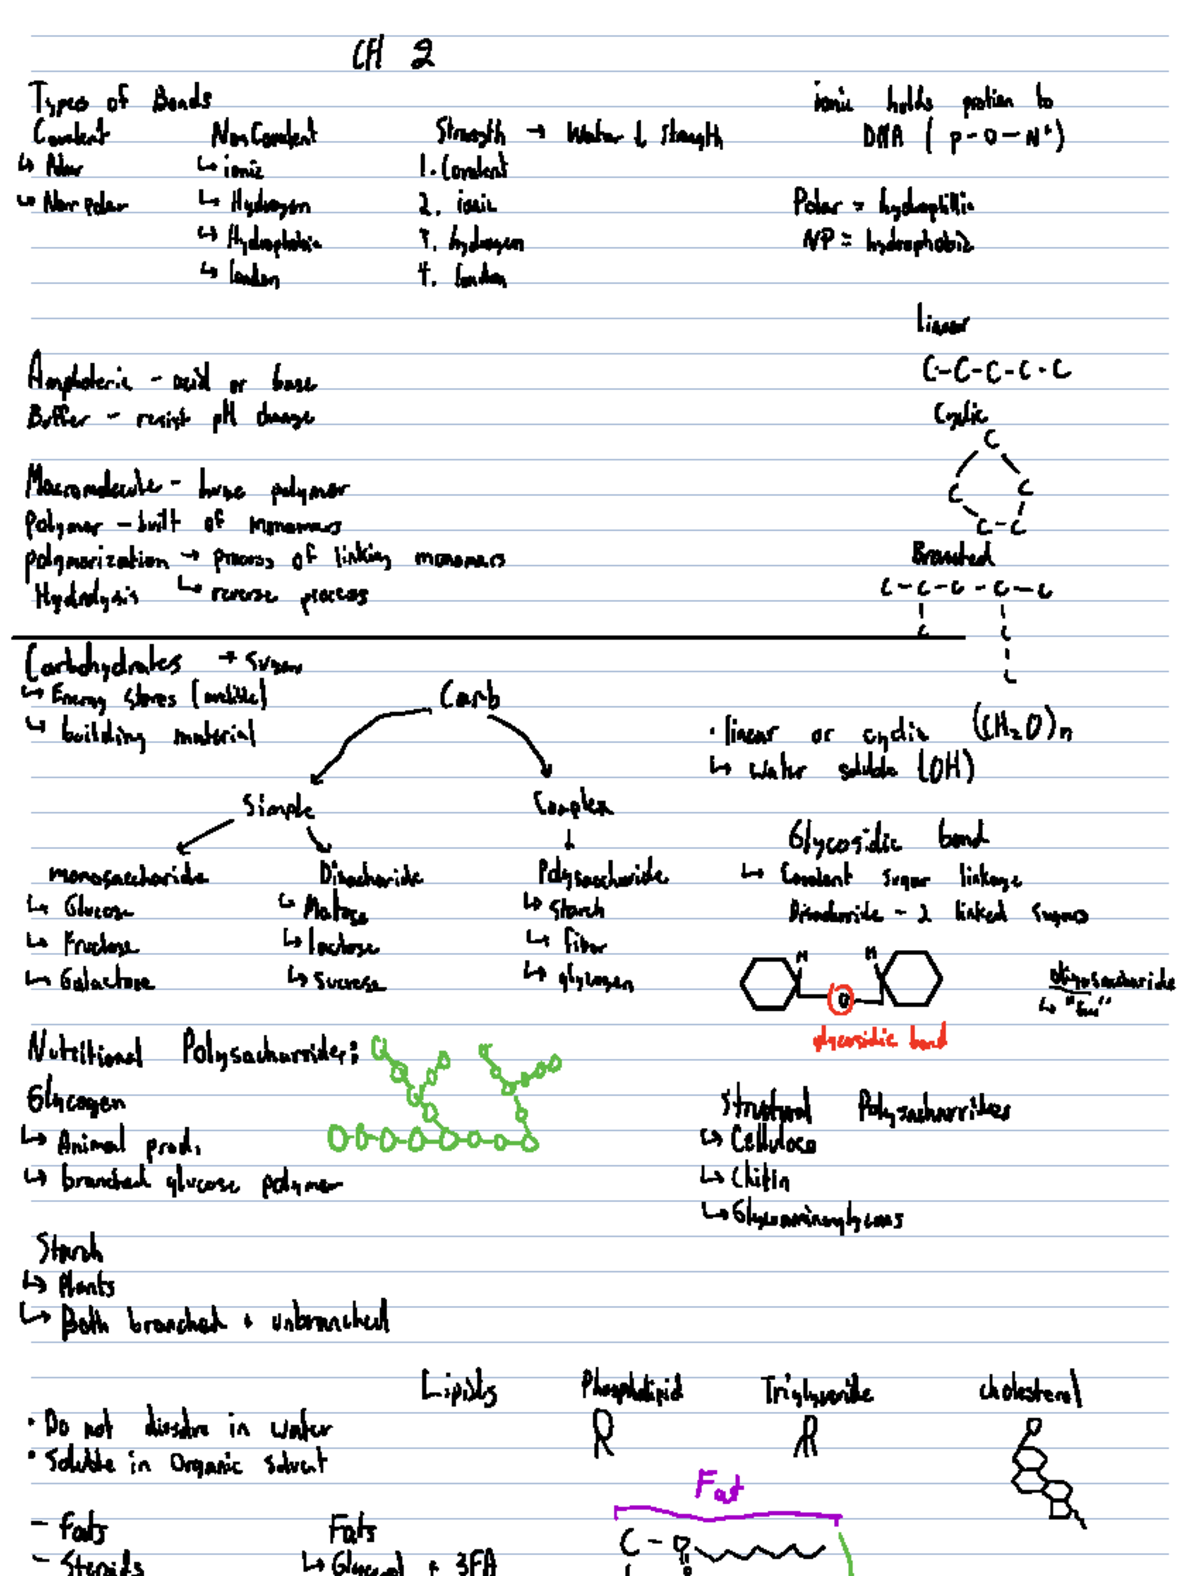 CH 2
Types of Bonds
Covalent
↳ Polar
↳ Non polar
Non Covalent
↳ ionic
↳ Hydrogen
↳ Hydrophobic
↳ London
Strength → Water ↓ strength
1. Covalent
2. ionic
3. hydrogen
4. London
ionic holds protien to
DNA ( P-O-N⁺)
Polar = hydrophillic
NP = hydrophobic
Linear
C-C-C-C-C
Cyclic
C
C C
C-C
Branched
C-C-C-C-C
C C
C
Amphoteric - acid or base
Buffer - resist pH change
Macromolecule - huge polymer
Polymer - built of monomers
polymerization → process of linking monomers
Hydrolysis ↳ reverse process
Carbohydrates → sugar
↳ Energy stores
↳ building material
Carb
Simple
Complex
monosaccharide
↳ Glucose
↳ Fructose
↳ Galactose
Disacharide
↳ Maltose
↳ lactose
↳ sucrose
Polysaccharide
↳ Starch
↳ fiber
↳ glycogen
· linear or cyclic (CH₂O)n
↳ water soluble (OH)
Glycosidic bond
↳ Covalent sugar linkage
Disacharide - 2 linked sugars
H H
O
glycosidic bond
oligosacharide
↳ "few"
Nutritional Polysacharrides:
Glycogen
↳ Animal prod.
↳ branched glucose polymer
Structural Polysacharrides
↳ Cellulose
↳ Chitin
↳ Glycosaminoglycans
Starch
↳ Plants
↳ Both branched + unbranched
Lipids
Phospholipid
Triglyceride
cholesterol
· Do not dissolve in water
· Soluble in Organic solvent
Fat
- Fats
- Steroids
Fats
↳ Glycerol + 3FA
C - O